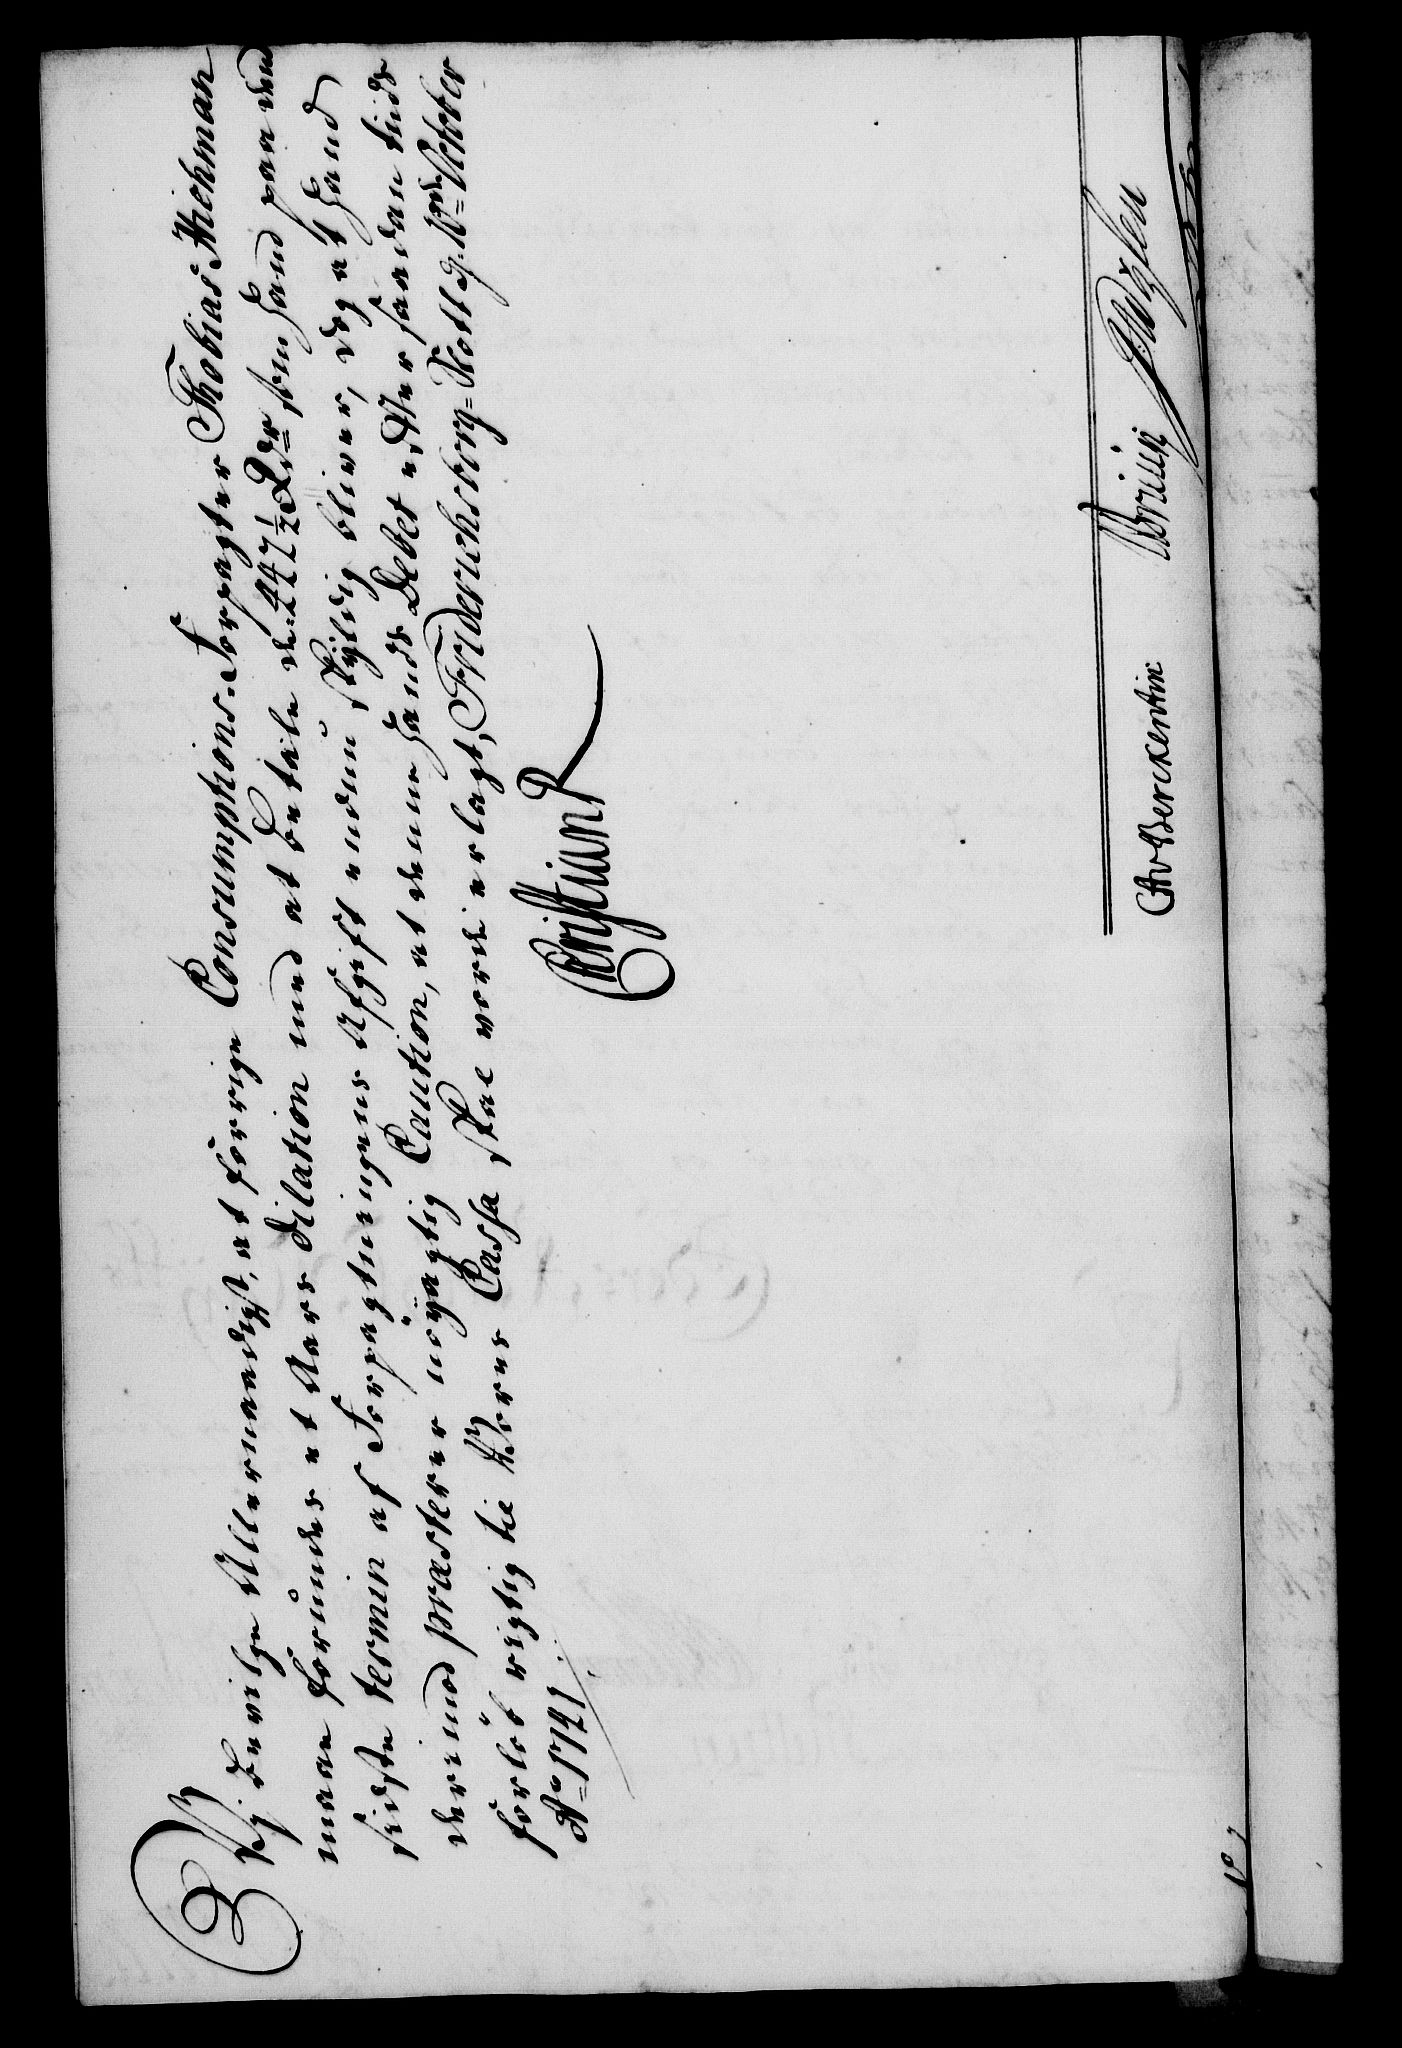 Vi bevilge Allernaadigst, at forrige Consumptions-Forpagter Thobias Wichman
maae forundes et Aars Dilation med at betale de 447½ Rdr som hand paa den
sidste termin af Forpagtningens Afgift endnu skyldig bliver, dog at hand
derimod præsterer nöyagtig Caution, at denne hands Debet efter saadan tiids
forlöb rigtig til Vores Cassa skal vorde erlagt, Friderichsborg-Slott d. 10de October
Ao 1741.
Christian R
CAvBerckentin Bruün